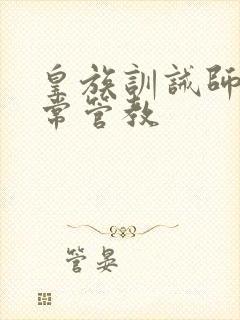 皇族訓誡師
常管教
管晏